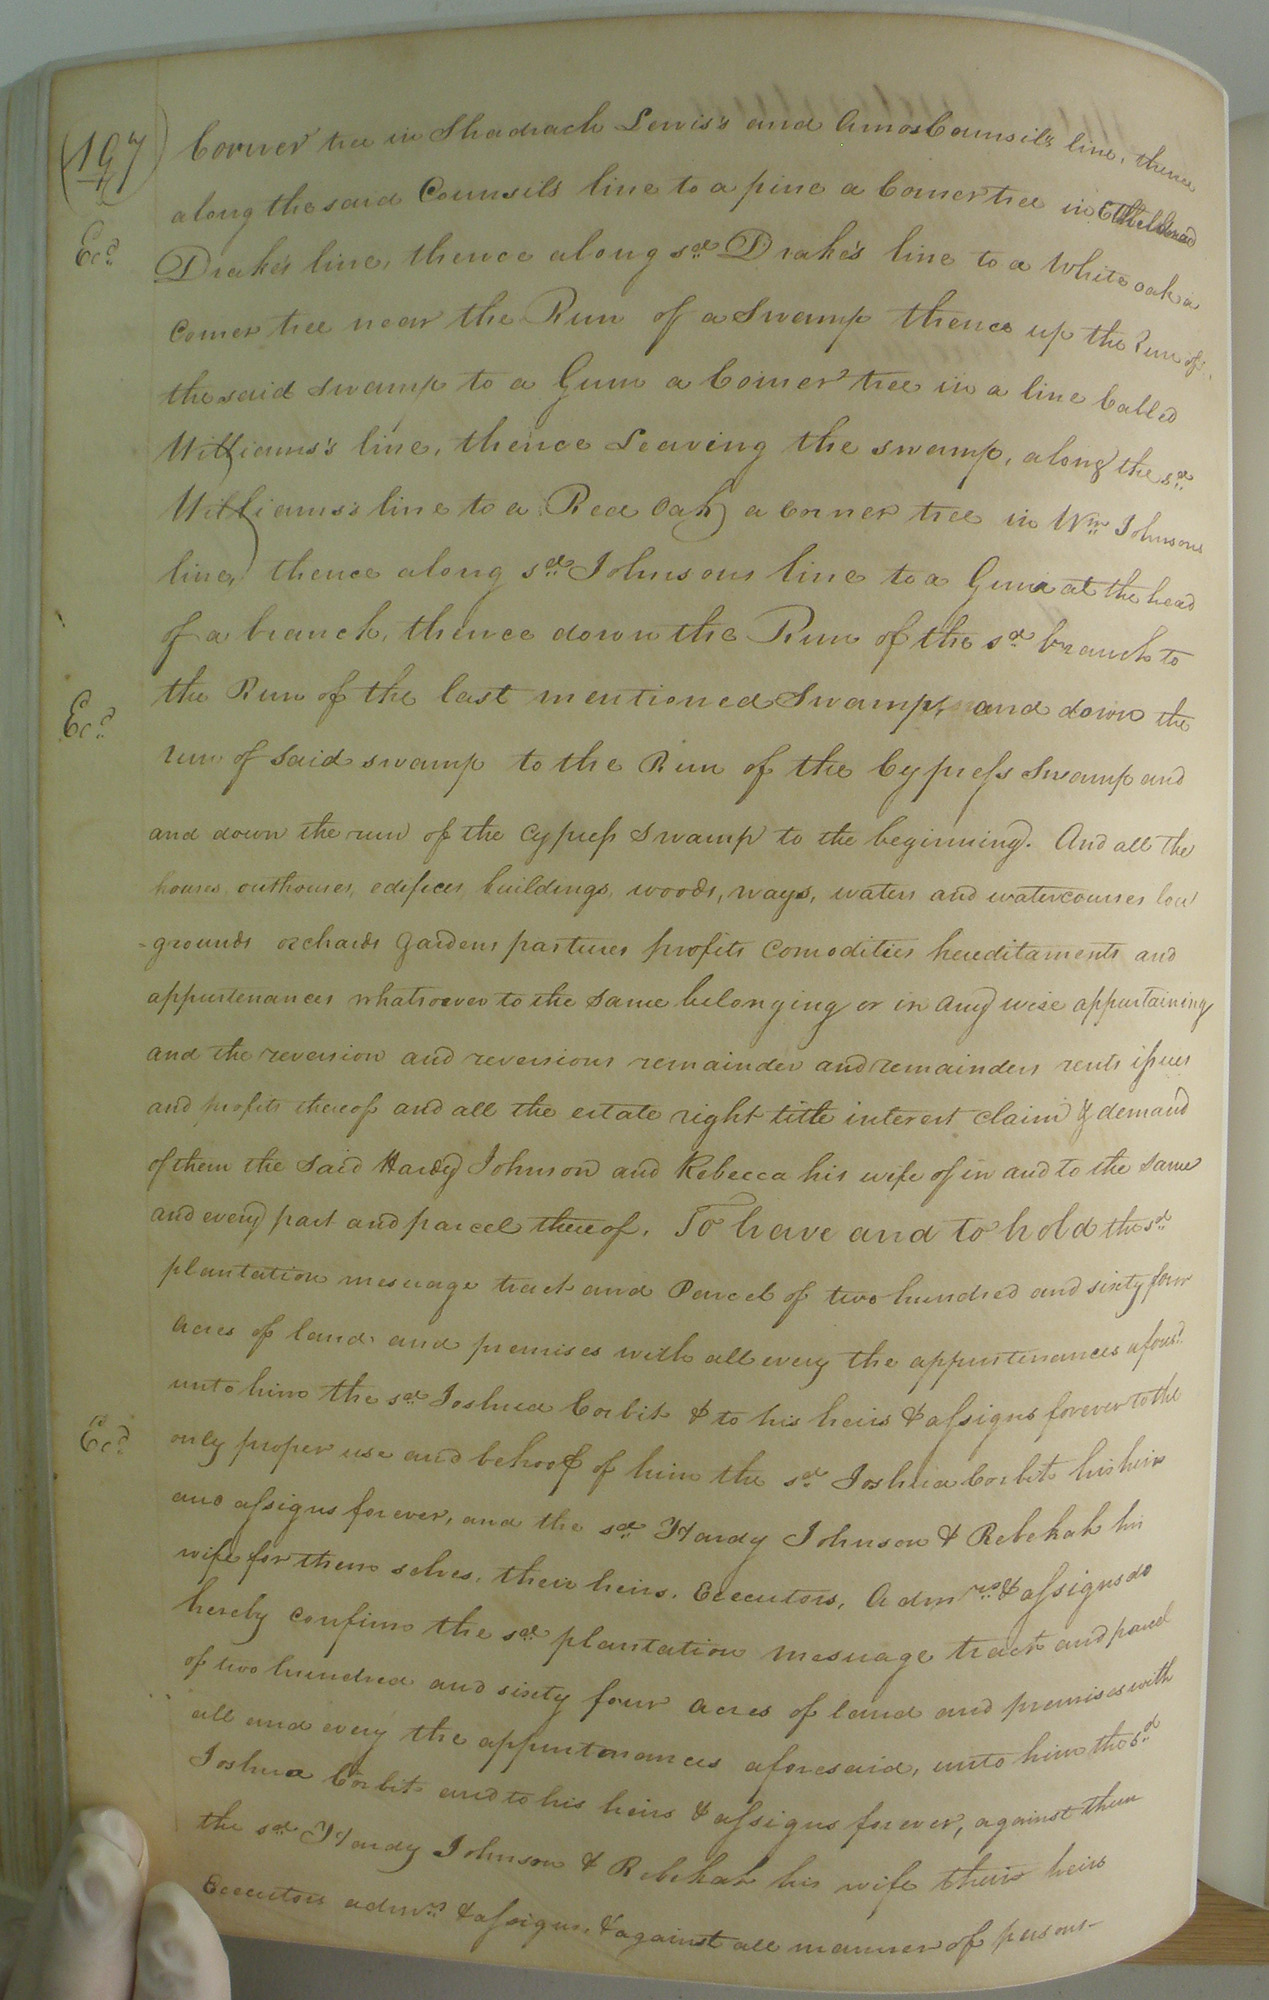 (197) Corner tree in Shadrach Lewis's and Amos Counsil's line, thence
along the said Counsils line to a pine a Corner tree in Etheldread
Exd
Drake's line, thence along sd Drake's line to a White oak a
Corner tree near the Run of a Swamp thence up the Run of
the said swamp to a Gum a Corner tree in a line Called
Williams's line, thence Leaving the swamp, along the sd
Williams's line to a Red Oak a Corner tree in Wm Johnsons
line, thence along sd Johnsons line to a Gum at the head
of a branch, thence down the Run of the sd branch to
the Run of the last mentioned Swamp, and down the
Exd
run of Said swamp to the Run of the Cypress Swamp and
and down the run of the Cypress Swamp to the beginning. And all the
houses, outhouses, edifices, buildings, woods, ways, waters and watercourses low
-grounds orchards Gardens pastures profits Comodities hereditaments and
appurtenances whatsoever to the Same belonging or in any wise appurtaining
and the reversion and reversions remainder and remainders rents issues
and profits thereof and all the estate right title interest claim & demand
of them the Said Hardy Johnson and Rebecca his wife of in and to the Same
and every part and parcel thereof. To have and to hold the sd
plantation mesuage tract and Parcel of two hundred and sixty four
Acres of land and premises with all every the appurtenances aforesd
unto him the sd Joshua Corbit & to his heirs & assigns forever to the
Exd
only proper use and behoof of him the sd Joshua Corbit his heirs
and assigns forever, and the sd Hardy Johnson & Rebekah his
wife for them selves, their heirs, Executors, Admrs & assigns do
hereby confirm the sd plantation mesuage tract and parcel
of two hundred and sixty four acres of land and premises with
all and every the appurtenances aforesaid, unto him the sd
Joshua Corbit and to his heirs & assigns forever, against them
the sd Hardy Johnson & Rebekah his wife their heirs
Executors admrs & assigns, & against all manner of persons-